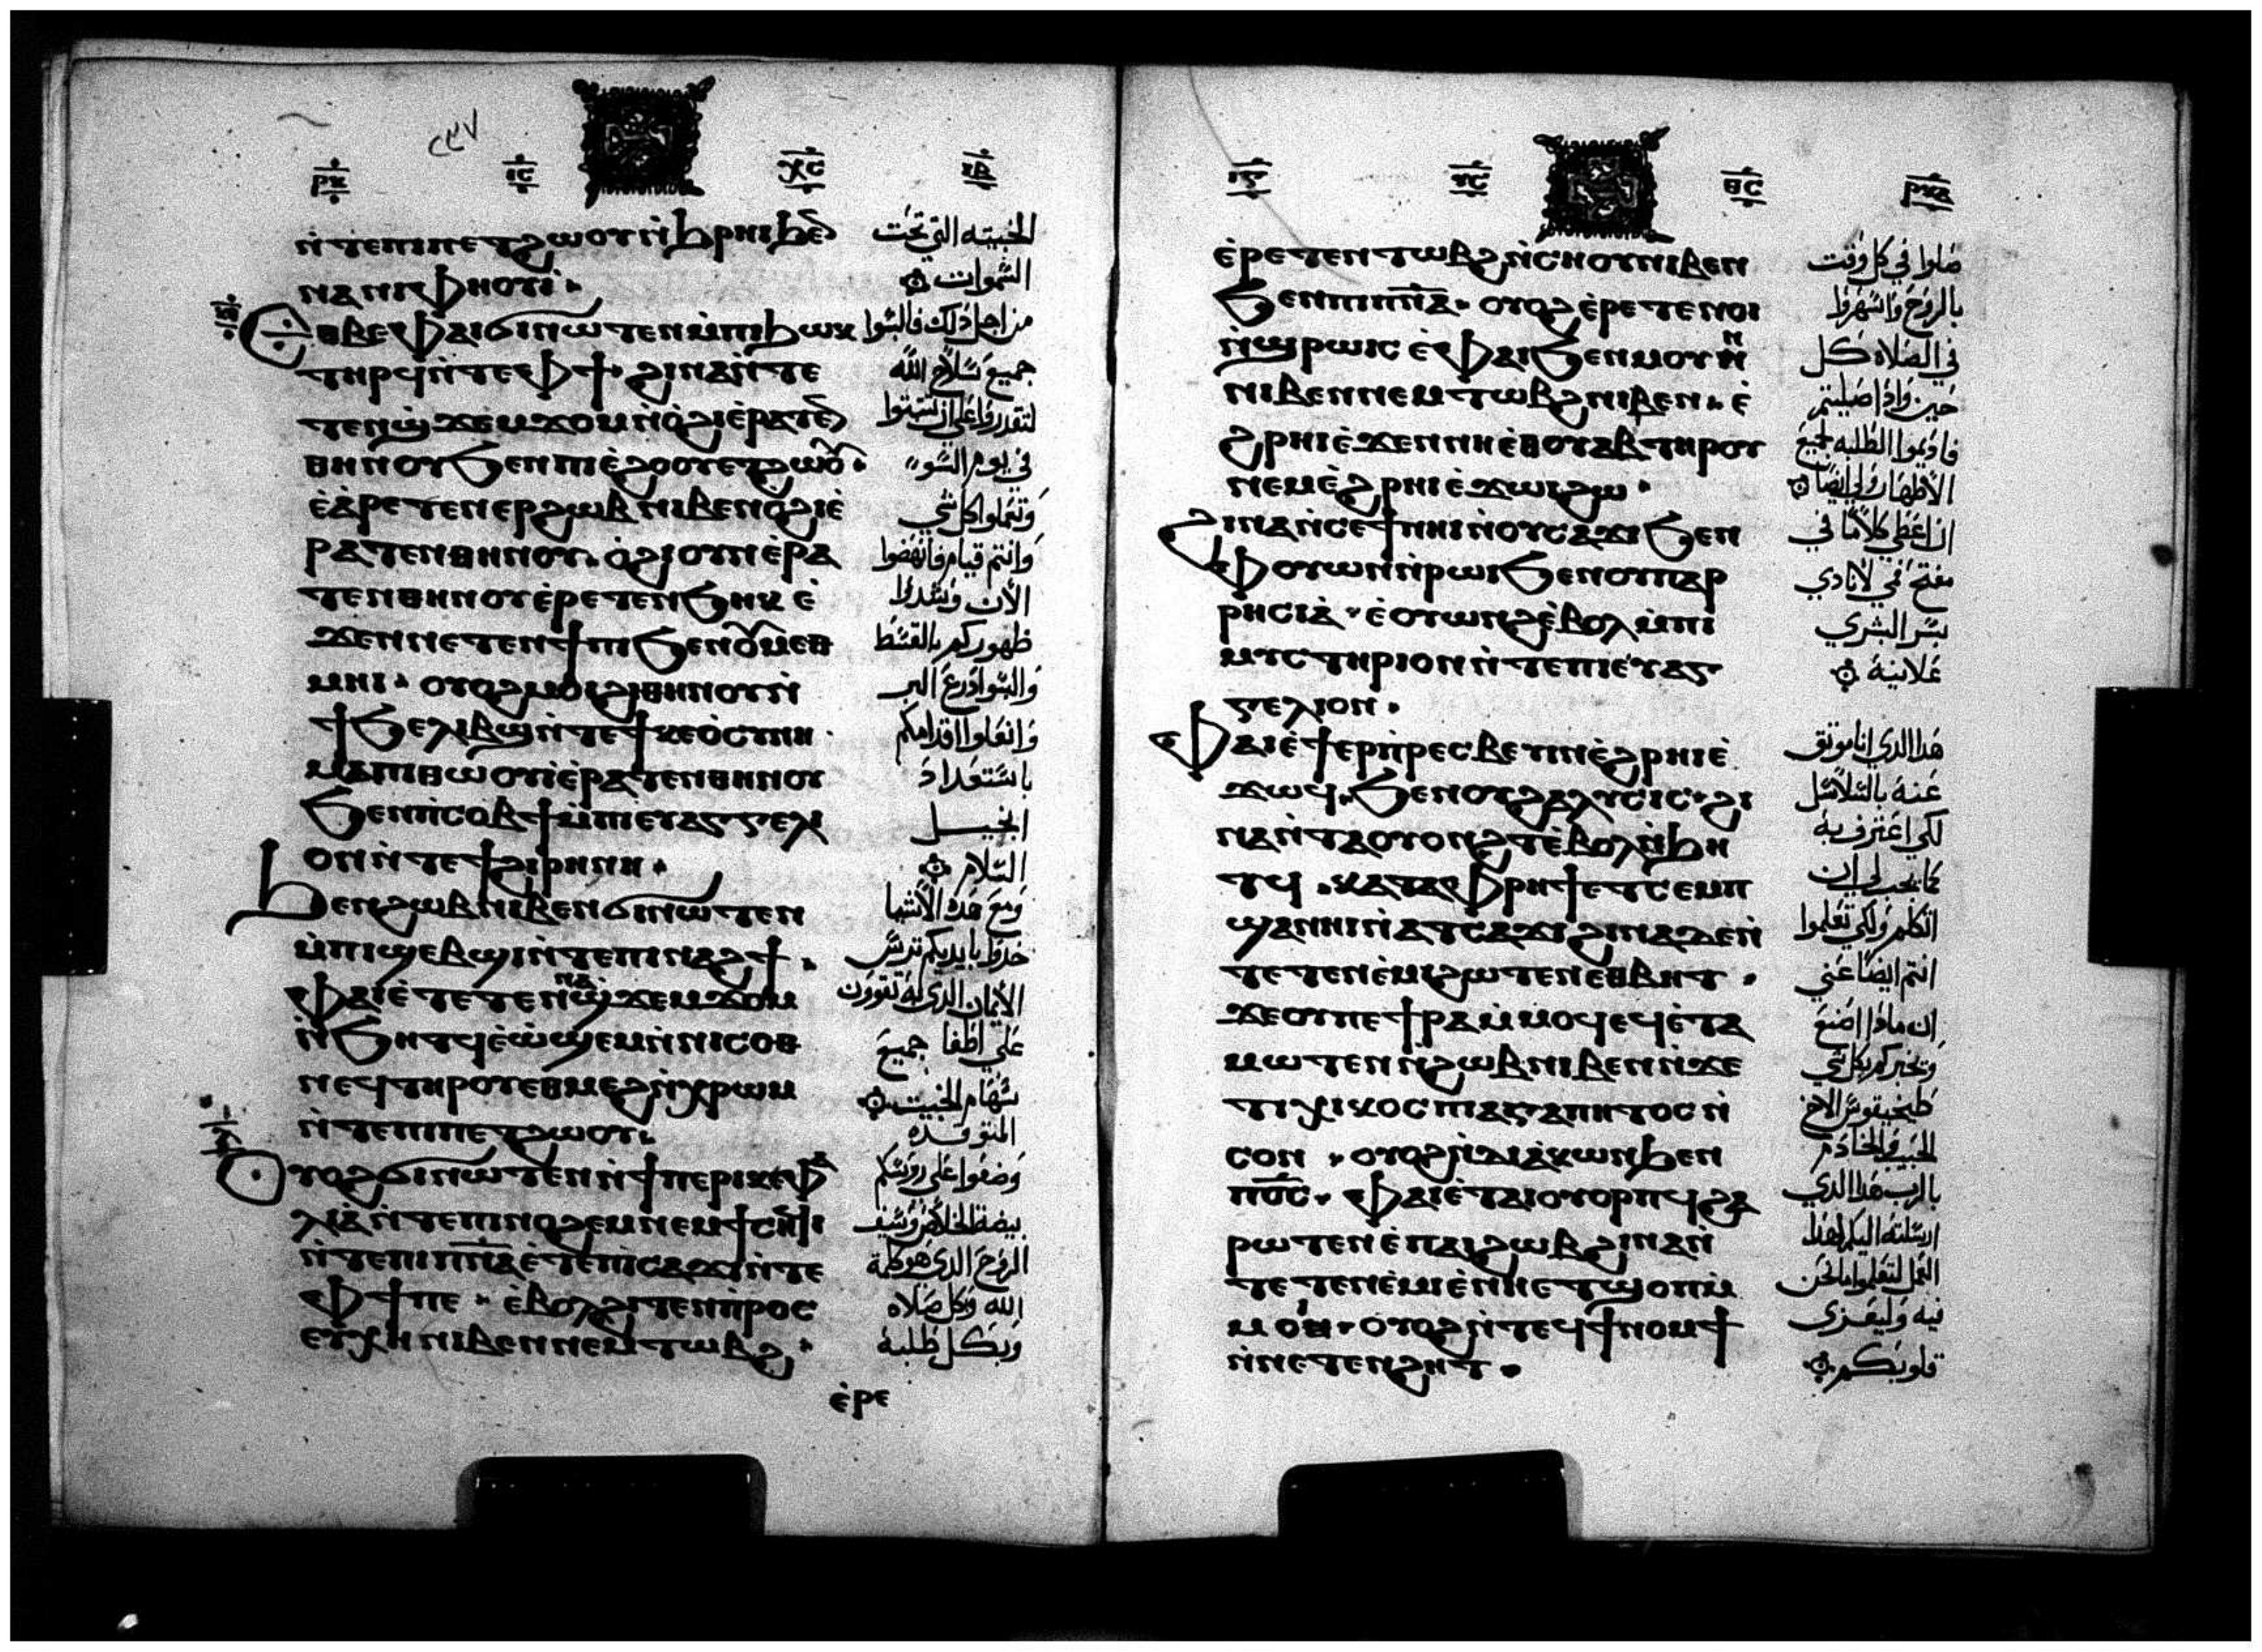 ⲣⲕ ⲓⲥ ⲭⲥ ⲓⲃ
ⲛ̀ⲧⲉⲡⲓⲡⲉⲧϩⲱⲟⲩⲛ̀ϧⲣⲏⲓϧⲉ̅
ⲛⲁⲛⲓⲫⲏⲟⲩⲓ̀·
ⲉⲑⲃⲉⲫⲁⲓϭⲓⲛⲱⲧⲉⲛⲙ̀ⲡⲓϧⲱⲕ
ⲧⲏⲣϥⲛ̀ⲧⲉⲫϯ· ϩⲓⲛⲁⲛ̀ⲧⲉ
ⲧⲉⲛϣ̀ϫⲉⲙϫⲟⲙⲛ̀ⲟ̀ϩⲓⲉ̀ⲣⲁⲧⲉ̅
ⲑⲏⲛⲟⲩϧⲉⲛⲡⲓⲉ̀ϩⲟⲟⲩⲉⲧϩⲱⲟ̅ⲩ·
ⲉ̀ⲁ̀ⲣⲉⲧⲉⲛⲉⲣϩⲱⲃⲛⲓⲃⲉⲛⲟ̀ϩⲓⲉ̀
ⲣⲁⲧⲉⲛⲑⲏⲛⲟⲩ· ⲟ̀ϩⲓⲟⲩⲛⲉ̀ⲣⲁ
ⲧⲉⲛⲑⲏⲛⲟⲩⲉ̀ⲣⲉⲧⲉⲛϧⲏⲕ ⲉ̀
ϫⲉⲛⲛⲉⲧⲉⲛϯⲡⲓϧⲉⲛⲟⲩⲙⲉⲑ
ⲙⲏⲓ· ⲟⲩⲟϩⲙⲟⲓϩⲓⲑⲏⲛⲟⲩⲛ̀
ϯϧⲉⲗⲓⲃϣⲛ̀ⲧⲉϯⲕⲉⲟ̀ⲥⲩⲛⲏ·
ⲙⲁⲡⲓⲑⲱⲟⲩⲓ̀ⲉ̀ⲣⲁⲧⲉⲛⲑⲏⲛⲟⲩ
ϧⲉⲛⲡ̀ⲥⲟⲃϯⲙ̀ⲡⲓⲉⲩⲁⲅⲅⲉⲗ
ⲟⲛⲛ̀ⲧⲉϯϩⲓⲣⲏⲛⲏ·
ϧⲉⲛϩⲱⲃⲛⲓⲃⲉⲛϭⲓⲛⲱⲧⲉⲛ
ⲙ̀ⲡⲓϣⲉⲃϣⲓⲛ̀ⲧⲉⲡⲓⲛⲁϩϯ·
ⲫⲁⲓⲉ̀ⲧⲉⲧⲉⲛⲛⲁϣ̀ϫⲉⲙϫⲟⲙ
ⲛ̀ϧⲏⲧϥⲉ̀ⲱ̀ϣⲉⲙⲛ̀ⲛⲓⲥⲟⲑ
ⲛⲉϥⲧⲏⲣⲟⲩⲉⲑⲙⲉϩⲛ̀ⲭⲣⲱⲙ
ⲛ̀ⲧⲉⲡⲓⲡⲉⲧϩⲱⲟⲩ·
ⲟⲩⲟϩϭⲓⲛⲱⲧⲉⲛⲛ̀ϯⲡⲉⲣⲓⲕⲉⲫⲁ
ⲗⲓⲁ̀ⲛ̀ⲧⲉⲡⲓⲛⲟϩⲉⲙⲛⲉⲙϯⲥⲏϥⲓ
ⲛ̀ⲧⲉⲡⲓⲡⲛ̅ⲁ̅ⲉ̀ⲧⲉⲡ̀ⲥⲁϫⲓⲛ̀ⲧⲉ
ⲫϯⲡⲉ· ⲉ̀ⲃⲟⲗϩⲓⲧⲉⲛⲡ̀ⲣⲟⲥ
ⲉⲩⲭⲏⲛⲓⲃⲉⲛⲛⲉⲙⲧⲱⲃϩ·
ⲉ̀ⲣⲉ
للخبيثه التي تحت
السموات
من اجل ذلك فالبسوا
جميع سلاح الله
لتقدروا علي ان تثبتوا
في يوم السو
وتتموا كل شي
وانتم قيام فانهضوا
الان وشدوا
ظهوركم بالقسط
والبسوا درع البر
وانعلوا اقدامكم
باستعداد
انجيل
السلام
ومع هذه الاشيا
خدوا بايديكم ترس
الايمان الدي به تقوون
علي اطفا جميع
سهام الخبيث
المتوقده
وضعوا علي رووسكم
بيضة الخلاص وسيف
الروح الدي هو كلمة
الله وكل صلاه
وبكل طلبة
ⲩⲥ ⲑⲥ ⲣⲕⲁ
ⲉ̀ⲣⲉⲧⲉⲛⲧⲱⲃϩⲛ̀ⲥⲏⲟⲩⲛⲓⲃⲉⲛ
ϧⲉⲛⲡⲓⲡⲛ̅ⲁ̅· ⲟⲩⲟϩⲉ̀ⲣⲉⲧⲉⲛⲟⲓ
ⲛ̀ϣⲣⲱⲓⲥ ⲉ̀ⲫⲁⲓϧⲉⲛⲙⲟⲩⲛ
ⲛⲓⲃⲉⲛⲛⲉⲙⲧⲱⲃϩⲛⲓⲃⲉⲛ· ⲉ̀
ϩⲣⲏⲓⲉ̀ϫⲉⲛⲛⲏⲉ̀ⲑⲟⲩⲁⲃⲧⲏⲣⲟⲩ
ⲛⲉⲙⲉ̀ϩⲣⲏⲓⲉ̀ϫⲱⲓϩⲱ·
ϩⲓⲛⲁⲛ̀ⲥⲉϯⲛⲏⲓⲛ̀ⲟⲩⲥⲁϫⲓϧⲉⲛ
ⲫⲟⲩⲱⲛⲛ̀ⲣⲱⲓϧⲉⲛⲟⲩⲡⲁⲣ
ⲣⲏⲥⲓⲁ̀· ⲉ̀ⲟⲩⲱⲛϩⲉ̀ⲃⲟⲗⲙ̀ⲡⲓ
ⲙⲩⲥⲧⲏⲣⲓⲟⲛⲛ̀ⲧⲉⲡⲓⲉⲩⲁⲅ
ⲅⲉⲗⲓⲟⲛ·
ⲫⲁⲓⲉ̀ϯⲉⲣⲡ̀ⲣⲉⲥⲃⲉⲩⲓⲛⲉ̀ϩⲣⲏⲓⲉ̀
ϫⲱϥ· ϧⲉⲛⲟⲩϩⲁⲗⲩⲥⲓⲥ· ϩⲓ
ⲛⲁⲛ̀ⲧⲁⲟⲩⲟⲛϩⲧⲉ̀ⲃⲟⲗⲛ̀ϧⲏ
ⲧϥ· ⲕⲁⲧⲁⲫⲣⲏϯⲉⲧⲥⲉⲙⲡ
ϣⲁⲛⲏⲓⲛ̀ⲁⲧⲥⲁϫⲓ ϩⲓⲛⲁϫⲉⲛ̀
ⲧⲉⲧⲉⲛⲉ̀ⲙⲓϩⲱⲧⲉⲛⲉⲑⲃⲏⲧ·
ϫⲉⲟⲩⲡⲉϯⲣⲁⲙ̀ⲙⲟϥⲉϥⲉ̀ⲧⲁ
ⲙⲱⲧⲉⲛⲛ̀ϩⲱⲃⲛⲓⲃⲉⲛⲛ̀ϫⲉ
ⲧⲓⲭⲓⲕⲟⲥⲡⲁⲅⲁⲡⲏⲧⲟⲥⲛ̀
ⲥⲟⲛ· ⲟⲩⲟϩⲛ̀ⲇⲓⲁ̀ⲕⲱⲛϧⲉⲛ
ⲡϭ̅ⲥ̅· ⲫⲁⲓⲉ̀ⲧⲁⲓⲟⲩⲟⲣⲡϥϩⲁ
ⲣⲱⲧⲉⲛⲉ̀ⲡⲁⲓϩⲱⲃϩⲓⲛⲁⲛ̀
ⲧⲉⲧⲉⲛⲉ̀ⲙⲓⲉ̀ⲛⲏⲉⲧϣⲟⲡⲙ̀
ⲙⲟⲛ· ⲟⲩⲟϩⲛ̀ⲧⲉϥϯⲛⲟⲙϯ
ⲛ̀ⲛⲉⲧⲉⲛϩⲏⲧ·
صلوا في كل وقت
بالروح واسهروا
في الصلاه كل
حين واذا صليتم
فاديموا الطلبه لجميع
الاطهار ولي ايضا
ان اعطي كلاما في
مفتح في لانادي
بسر البشري
علانية
هذا الدي انا موثق
عنه بالسلاسل
لكي اعترف به
كما يجب لي ان
اتكلم ولكي تعلموا
انتم ايضا عني
ان ماذا اصنع
ويخبركم بكل شي
طيخيقوس الاخ
الحبيب والخادم
بالرب هذا الدي
ارسلته اليكم لهذا
العمل لتعلموا ما نحن
فيه وليعزي
قلوبكم